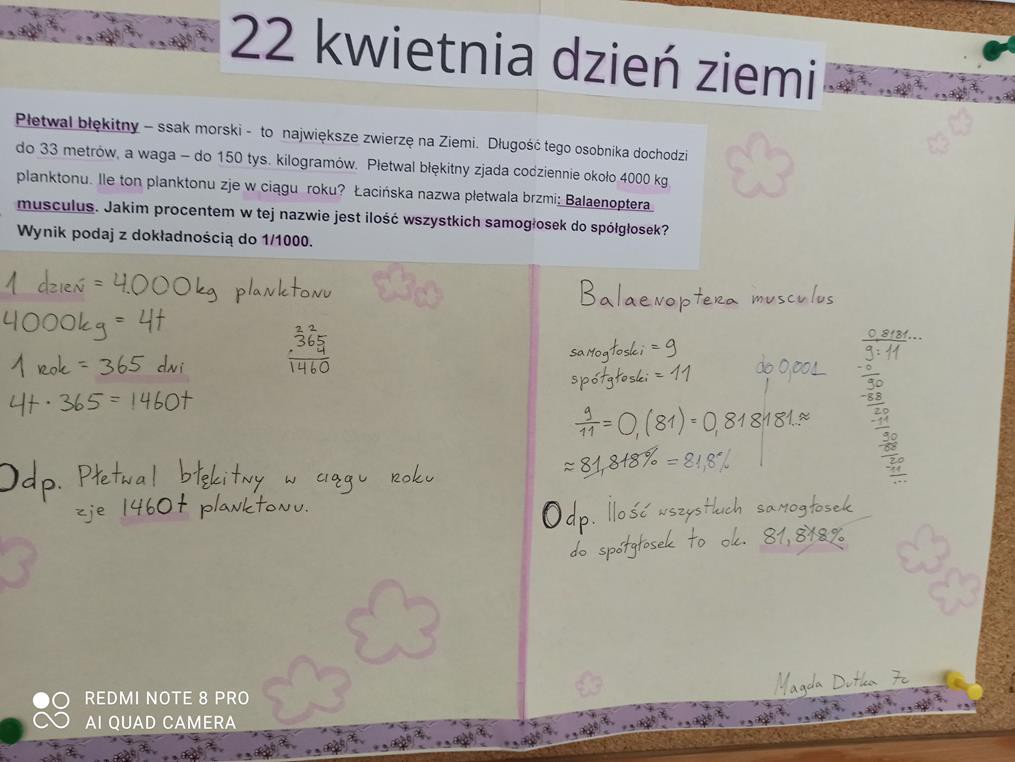 22 kwietnia dzień ziemi
Płetwal błękitny – ssak morski - to największe zwierzę na Ziemi. Długość tego osobnika dochodzi
do 33 metrów, a waga – do 150 tys. kilogramów. Płetwal błękitny zjada codziennie około 4000 kg
planktonu. Ile ton planktonu zje w ciągu roku? Łacińska nazwa płetwala brzmi: Balaenoptera
musculus. Jakim procentem w tej nazwie jest ilość wszystkich samogłosek do spółgłosek?
Wynik podaj z dokładnością do 1/1000.
1 dzień = 4.000kg planktonu
4000kg = 4t
1 rok = 365 dni
4t · 365 = 1460t
2 2
365
· 4
1460
Odp. Płetwal błękitny w ciągu roku
zje 1460t planktonu.
Balaenoptera musculus
samogłoski = 9
spółgłoski = 11
do 0,001
9/11 = 0,(81) = 0,818181..≈
≈ 81,818% = 81,8%
0,8181...
9 : 11
-0
90
-88
20
-11
90
88
20
-11
...
Odp. Ilość wszystkich samogłosek
do spółgłosek to ok. 81,818%
Magda Dutka 7c
REDMI NOTE 8 PRO
AI QUAD CAMERA